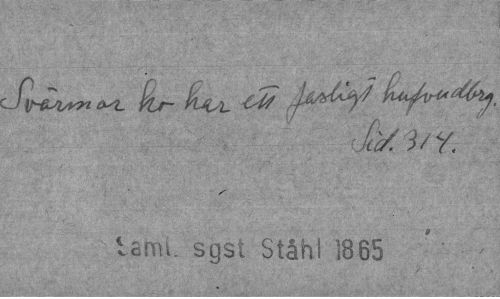 Svärmor ho har ett fasligt hufvudbry.
Sid. 314.
Saml. sgst Ståhl 1865